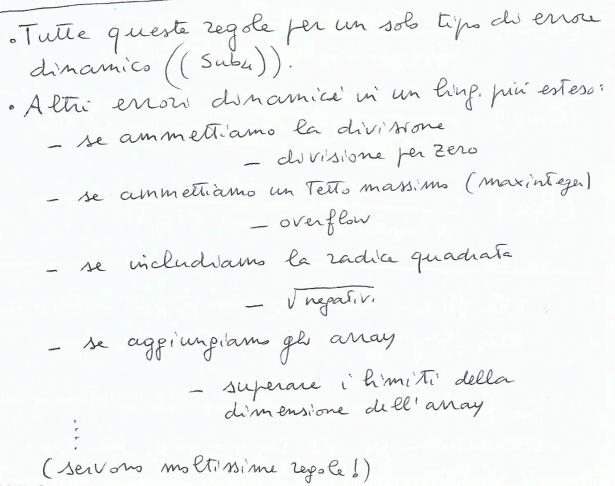 • Tutte queste regole per un solo tipo di errore
dinamico ((Sub4)).
• Altri errori dinamici in un ling. più esteso:
– se ammettiamo la divisione
– divisione per zero
– se ammettiamo un Tetto massimo (maxinteger)
– overflow
– se includiamo la radice quadrata
– √negativi
– se aggiungiamo gli array
– superare i limiti della
dimensione dell'array
....
(servono moltissime regole!)